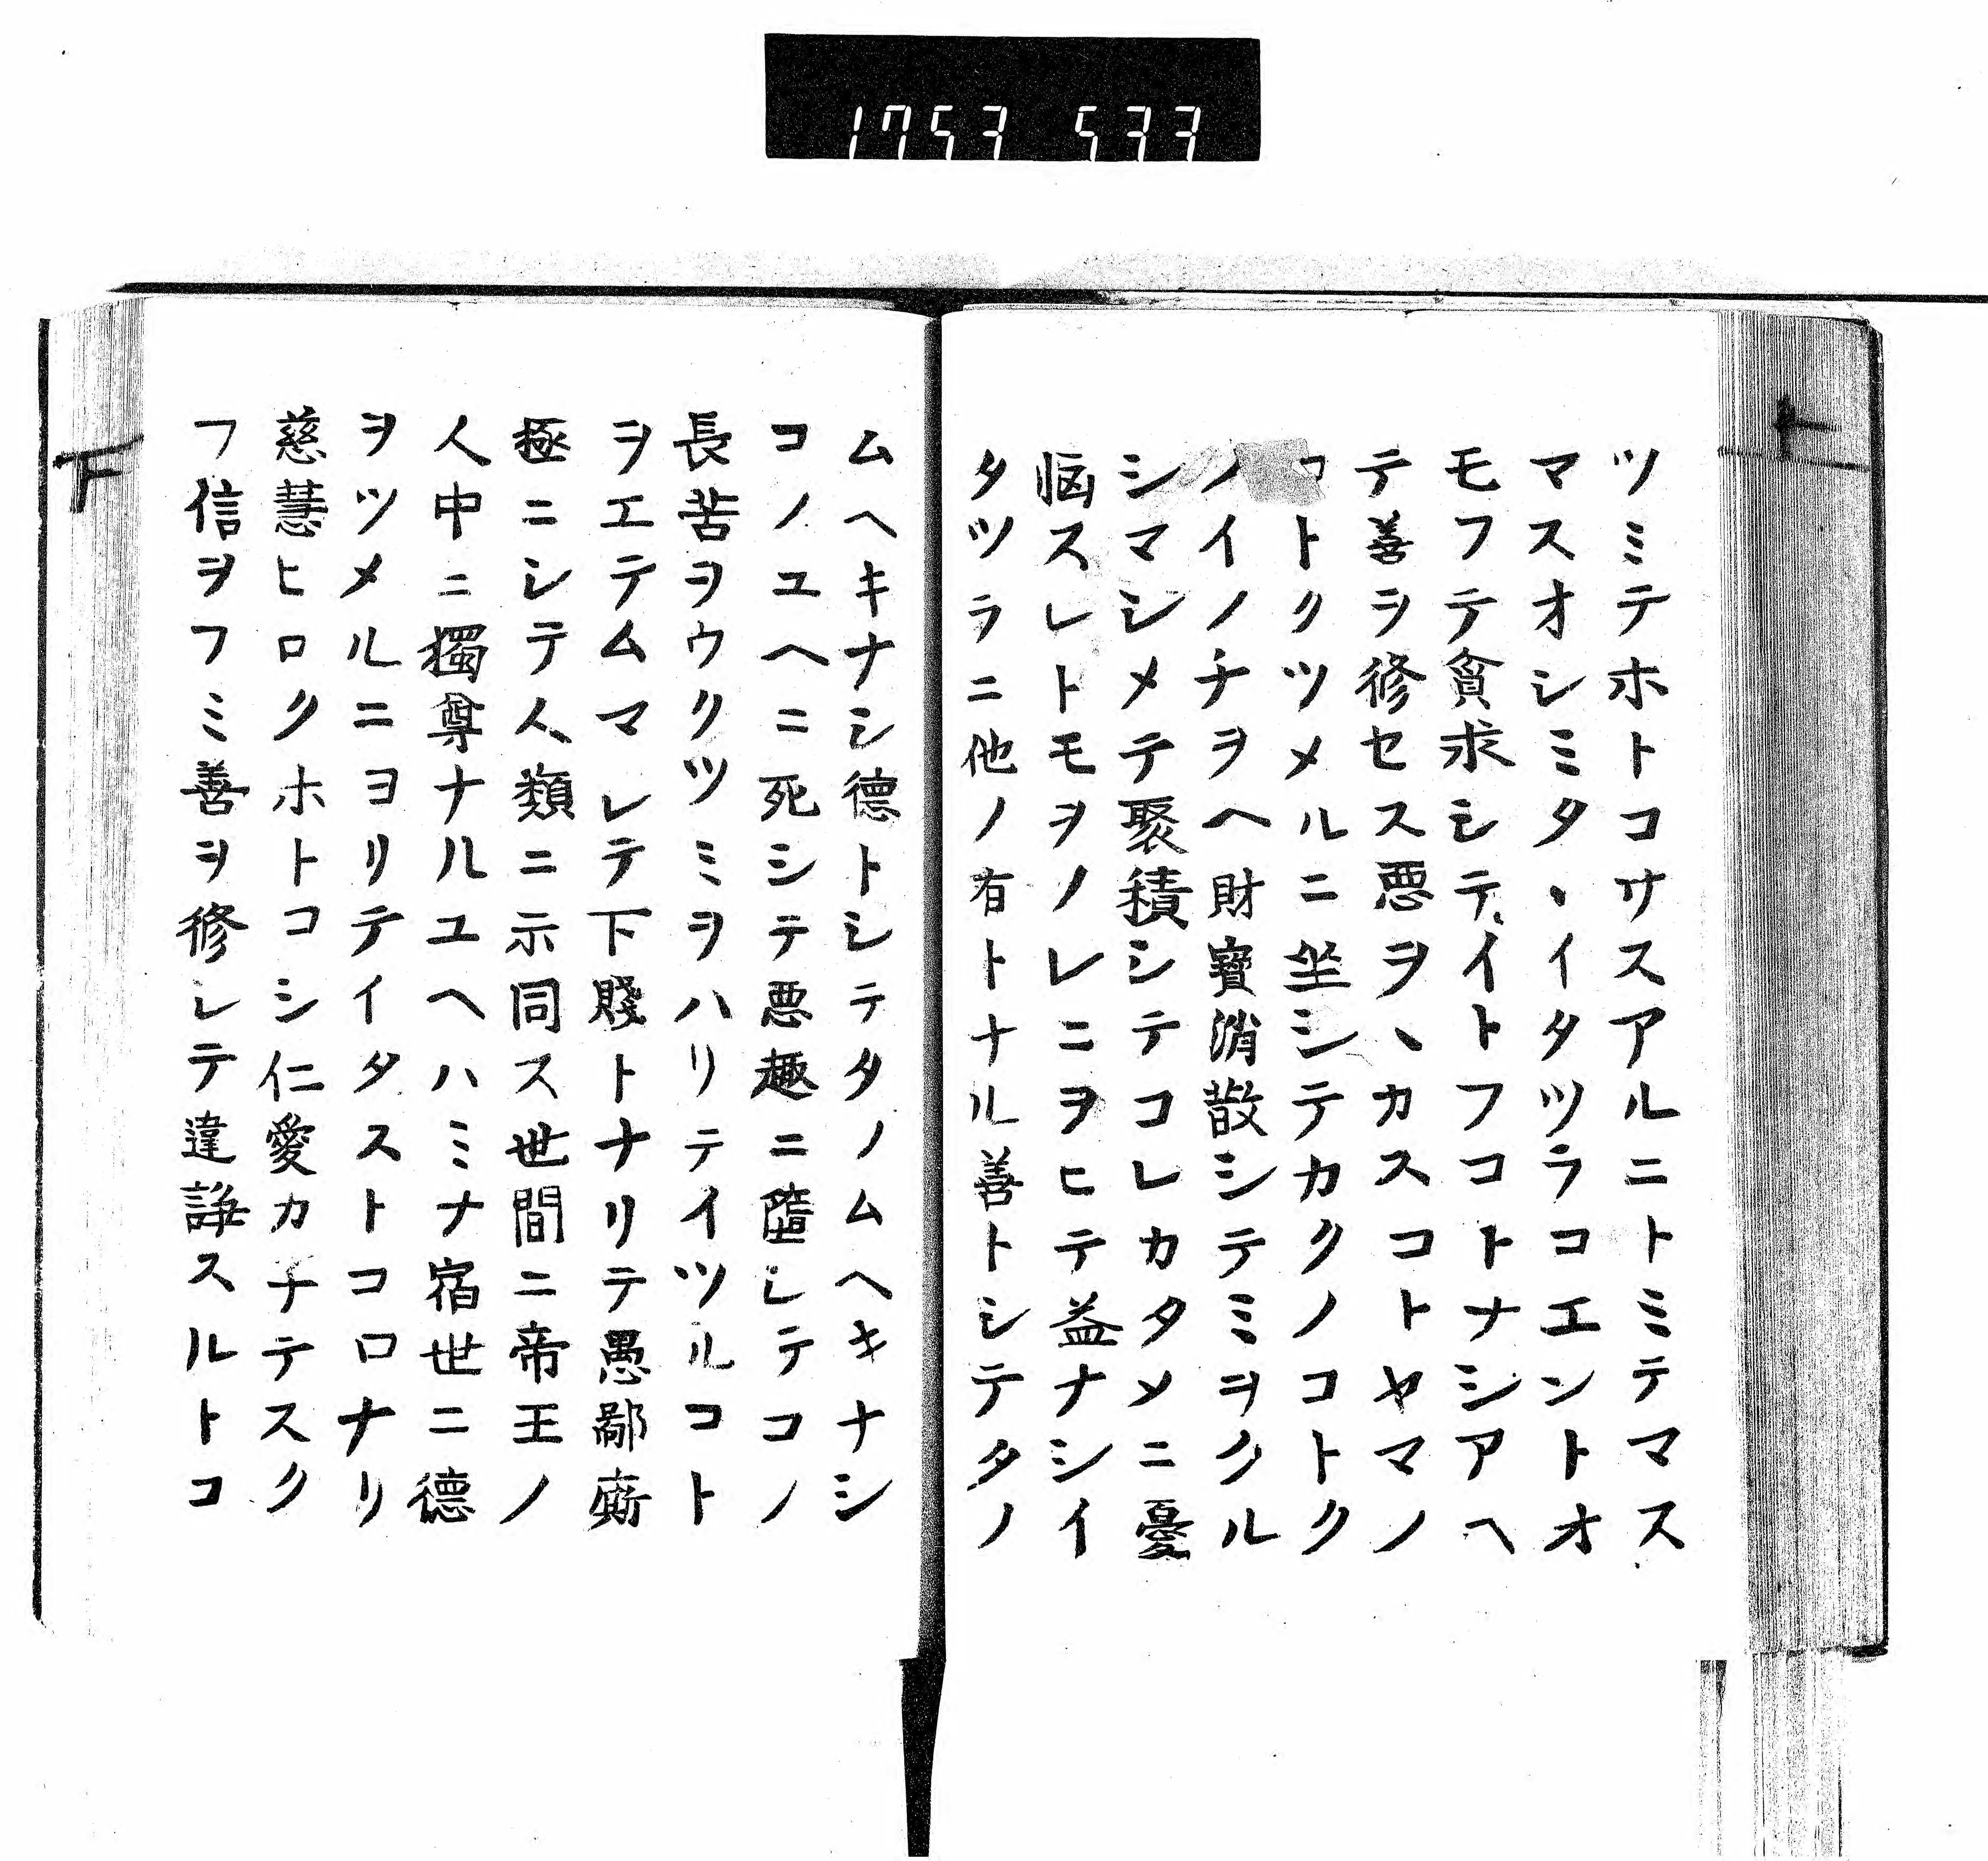 1753 533
ツミテホトコサスアルニトミテマス
マスオシミタヽイタツラコエントオ
モフテ貪求シテイトフコトナシアヘ
テ善ヲ修セス悪ヲヽカスコトヤマノ
コトクツメルニ坐シテカクノコトク
ノイノチヲヘ財寶消散シテミヲクル
シマシメテ聚積シテコレカタメニ憂
悩スレトモヲノレニヲヒテ益ナシイ
タツラニ他ノ有トナル善トシテタノ
ムヘキナシ德トシテタノムヘキナシ
コノユヘニ死シテ悪趣ニ墮シテコノ
長苦ヲウクツミヲハリテイツルコト
ヲエテムマレテ下賤トナリテ愚鄙廝
極ニシテ人類ニ示同ス世間ニ帝王ノ
人中ニ獨尊ナルユヘハミナ宿世ニ德
ヲツメルニヨリテイタストコロナリ
慈慧ヒロクホトコシ仁愛カナテスク
フ信ヲフミ善ヲ修シテ違諍スルトコ
下